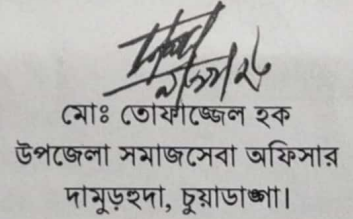 মোঃ তোফাজ্জেল হক
উপজেলা সমাজসেবা অফিসার
দামুড়হুদা, চুয়াডাঙ্গা।